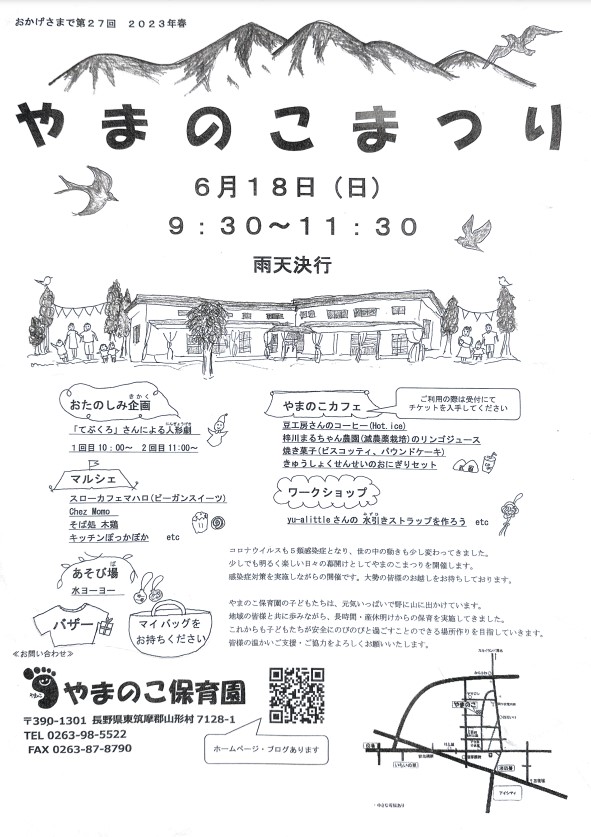 おかげさまで第27回　2023年春
やまのこまつり
6月18日（日）
9：30～11：30
雨天決行
おたのしみ企画
「てぶくろ」さんによる人形劇
1回目10：00～　2回目11:00～
マルシェ
スローカフェマハロ(ビーガンスイーツ)
Chez Momo
そば処 木鶏
キッチンぽっかぽか　etc
あそび場
水ヨーヨー
バザー
マイバッグを
お持ちください
やまのこカフェ
ご利用の際は受付にて
チケットを入手してください
豆工房さんのコーヒー(Hot.ice)
梓川まるちゃん農園(減農薬栽培)のリンゴジュース
焼き菓子(ビスコッティ、パウンドケーキ)
きゅうしょくせんせいのおにぎりセット
ワークショップ
yu-alittleさんの 水引きストラップを作ろう　etc
コロナウイルスも５類感染症となり、世の中の動きも少し変わってきました。
少しでも明るく楽しい日々の幕開けとしてやまのこまつりを開催します。
感染症対策を実施しながらの開催です。大勢の皆様のお越しをお待ちしております。
やまのこ保育園の子どもたちは、元気いっぱいで野に山に出かけています。
地域の皆様と共に歩みながら、長時間・産休明けからの保育を実施してきました。
これからも子どもたちが安全にのびのびと過ごすことのできる場所作りを目指していきます。
皆様の温かいご支援・ご協力をよろしくお願いいたします。
≪お問い合わせ≫
やまのこ保育園
〒390-1301 長野県東筑摩郡山形村 7128-1
TEL 0263-98-5522
FAX 0263-87-8790
ホームページ・ブログあります
やまのこ
アイシティ